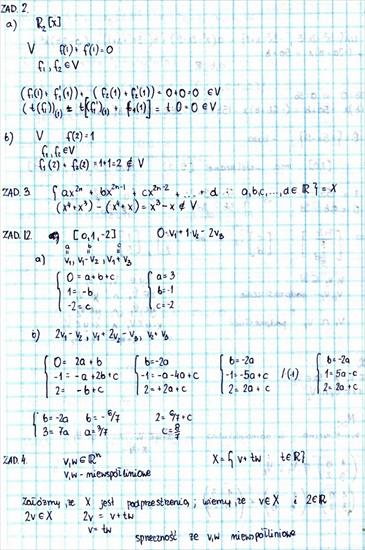 ZAD. 2.
a) R₂[x]
V f(1) + f'(1) = 0
f₁, f₂ ∈ V
(f₁(1) + f₁'(1)) + (f₂(1) + f₂'(1)) = 0+0 = 0 ∈ V
t 0 = 0 ∈ V
b) V f(2) = 1
f₁, f₂ ∈ V
f₁(2) + f₂(2) = 1+1 = 2 ∉ V
ZAD. 3 { ax²ⁿ + bx²ⁿ⁻¹ + cx²ⁿ⁻² + ... + d : a,b,c,...,d ∈ R } = X
(x⁴+x³) - (x⁴+x) = x³-x ∉ V
ZAD. 12 [0,1,-2] 0·v₁ + 1·v₂ - 2v₃
a b c
a) v₁, v₁-v₂, v₁+v₃
{ 0 = a+b+c { a = 3
1 = -b b = -1
-2 = c c = -2
b) 2v₁-v₂, v₁+2v₂-v₃, v₂+v₃
{ 0 = 2a+b { b = -2a { b = -2a { b = -2a
-1 = -a+2b+c -1 = -a-4a+c -1 = -5a+c /(-1) 1 = 5a-c
2 = -b+c 2 = +2a+c 2 = 2a+c 2 = 2a+c
{ b = -2a b = -6/7 2 = 6/7+c
3 = 7a a = 3/7 c = 8/7
ZAD. 4. v,w ∈ Rⁿ X = { v+tw : t ∈ R }
v,w - niewspółliniowe
Załóżmy, że X jest podprzestrzenią, wiemy, że v ∈ X i 2 ∈ R
2v ∈ X 2v = v+tw
v = tw
sprzeczność że v,w niewspółliniowe